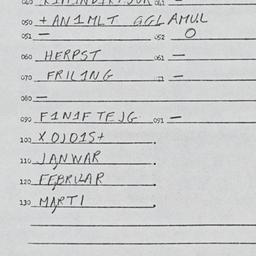 050 + AN1MLT GGLAMUL
051 — 052 O
060 HERPST 061 —
070 FRIL1NG —
080 —
090 F1N1F TEJG 091 —
100 X OJO1S+
110 JANWAR
120 FEBRUAR
130 MARTI